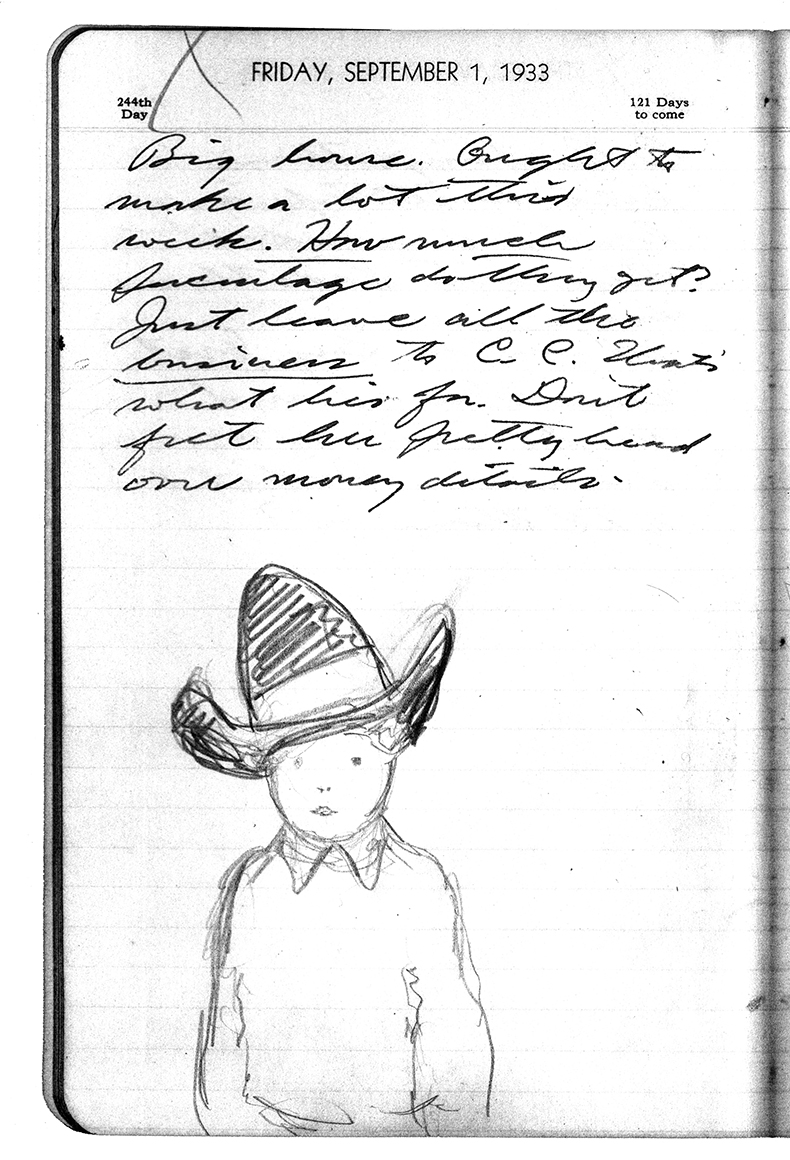 FRIDAY, SEPTEMBER 1, 1933
244th
Day
121 Days
to come
Big house. Ought to
make a lot this
week. How much
percentage do they get?
Just leave all the
business to C. C. That's
what he's for. Don't
fret her pretty head
over money details.